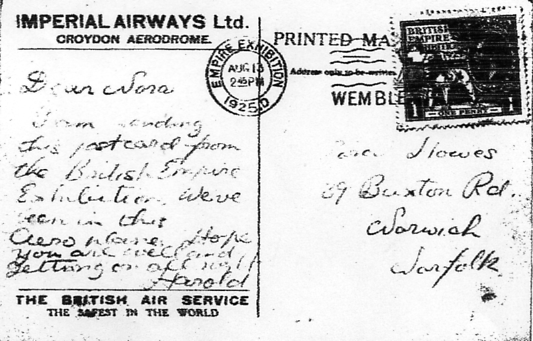 IMPERIAL AIRWAYS Ltd.
CROYDON AERODROME.
Dear Nora
I am sending
this postcard from
the British Empire
Exhibition. We've
been in this
Aeroplane. Hope
you are well and
getting on all right
Harold
THE BRITISH AIR SERVICE
THE SAFEST IN THE WORLD
EMPIRE EXHIBITION
AUG 13
1925
PRINTED
Address only to be written
WEMBLE
BRITISH
EMPIRE
EXHIBITION
1
ONE PENNY
1
Howes
39 Buxton Rd.
Norwich
Norfolk